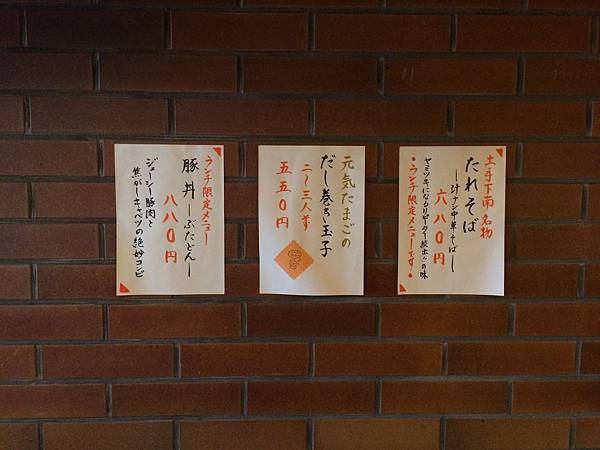 土手下南名物
たれそば
―汁ナシ中華そば―
六八〇円
ヤミツキになるリピーター続出!の味
•ランチ限定メニューです!•
元気たまごの
だし巻き玉子
二〜三人前
五五〇円
ランチ限定メニュー
豚丼―ぶたどん―
八八〇円
ジューシー豚肉と
焦がしキャベツの絶妙コンビ